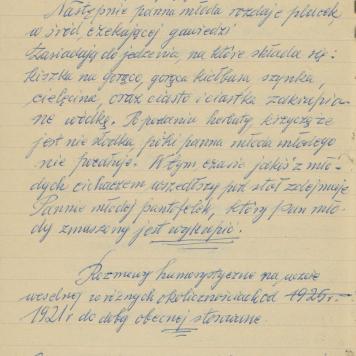 Następnie panna młoda rozdaje placek
wśród czekającej gawiedzi
Zasiadają do jedzenia, na które składa się:
kiszka na gorąco, gorąca kiełbasa szynka,
cielęcina, oraz ciasto i ciastka zakrapia-
ne wódką. Podczas herbaty krzyczą że
jest nie słodka, póki panna młoda młodego
nie pocałuje. W tym czasie jakiś z mło-
dych cichaczem wszedłszy pod stół zdejmuje
Pannie młodej pantofelek, który pan mło-
dy zmuszony jest wykupić.
Rozmowy humorystyczne na
weselnej w różnych okolicznościach od 1925r-
1921r do doby obecnej stosowane.